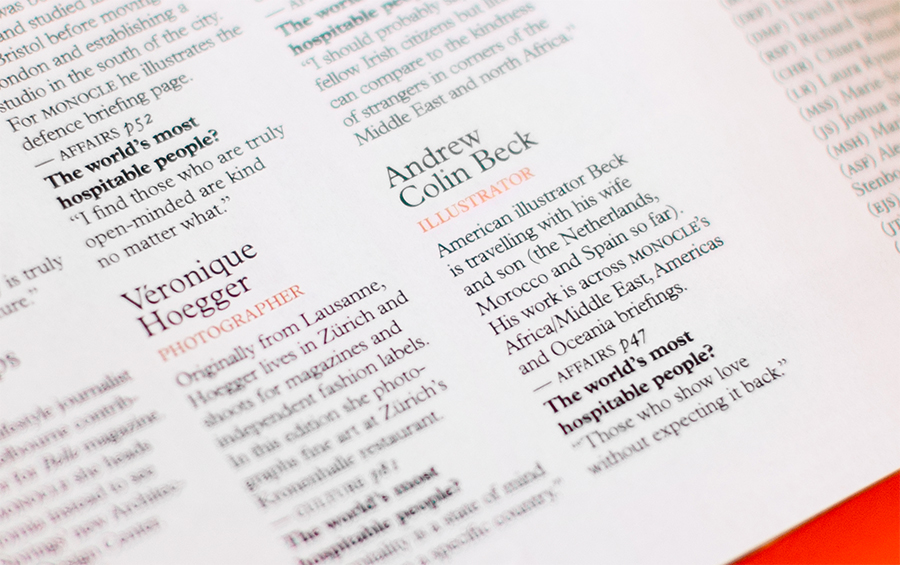 and studied in
Bristol before moving
London and establishing a
studio in the south of the city.
For MONOCLE he illustrates the
defence briefing page.
— AFFAIRS p52
The world's most
hospitable people?
"I find those who are truly
open-minded are kind
no matter what."
Véronique
Hoegger
PHOTOGRAPHER
Originally from Lausanne,
Hoegger lives in Zürich and
shoots for magazines and
independent fashion labels.
In this edition she photo-
graphs fine art at Zürich's
Kronenhalle restaurant.
— CULTURE p81
The world's most
hospitable people?
is a state of mind
a specific country."
The world's most
hospitable
"I should probably
fellow Irish citizens but
can compare to the kindness
of strangers in corners of the
Middle East and north Africa."
Andrew
Colin Beck
ILLUSTRATOR
American illustrator Beck
is travelling with his wife
and son (the Netherlands,
Morocco and Spain so far).
His work is across MONOCLE's
Africa/Middle East, Americas
and Oceania briefings.
— AFFAIRS p47
The world's most
hospitable people?
"Those who show love
without expecting it back."
is truly
journalist
magazine
she heads
instead to see
new
David
(RSP) Richard
(CHR) Chiara
(LR) Laura
(MSS) Marie
(JS) Joshua
(MSH)
(ASF)
(EJS)